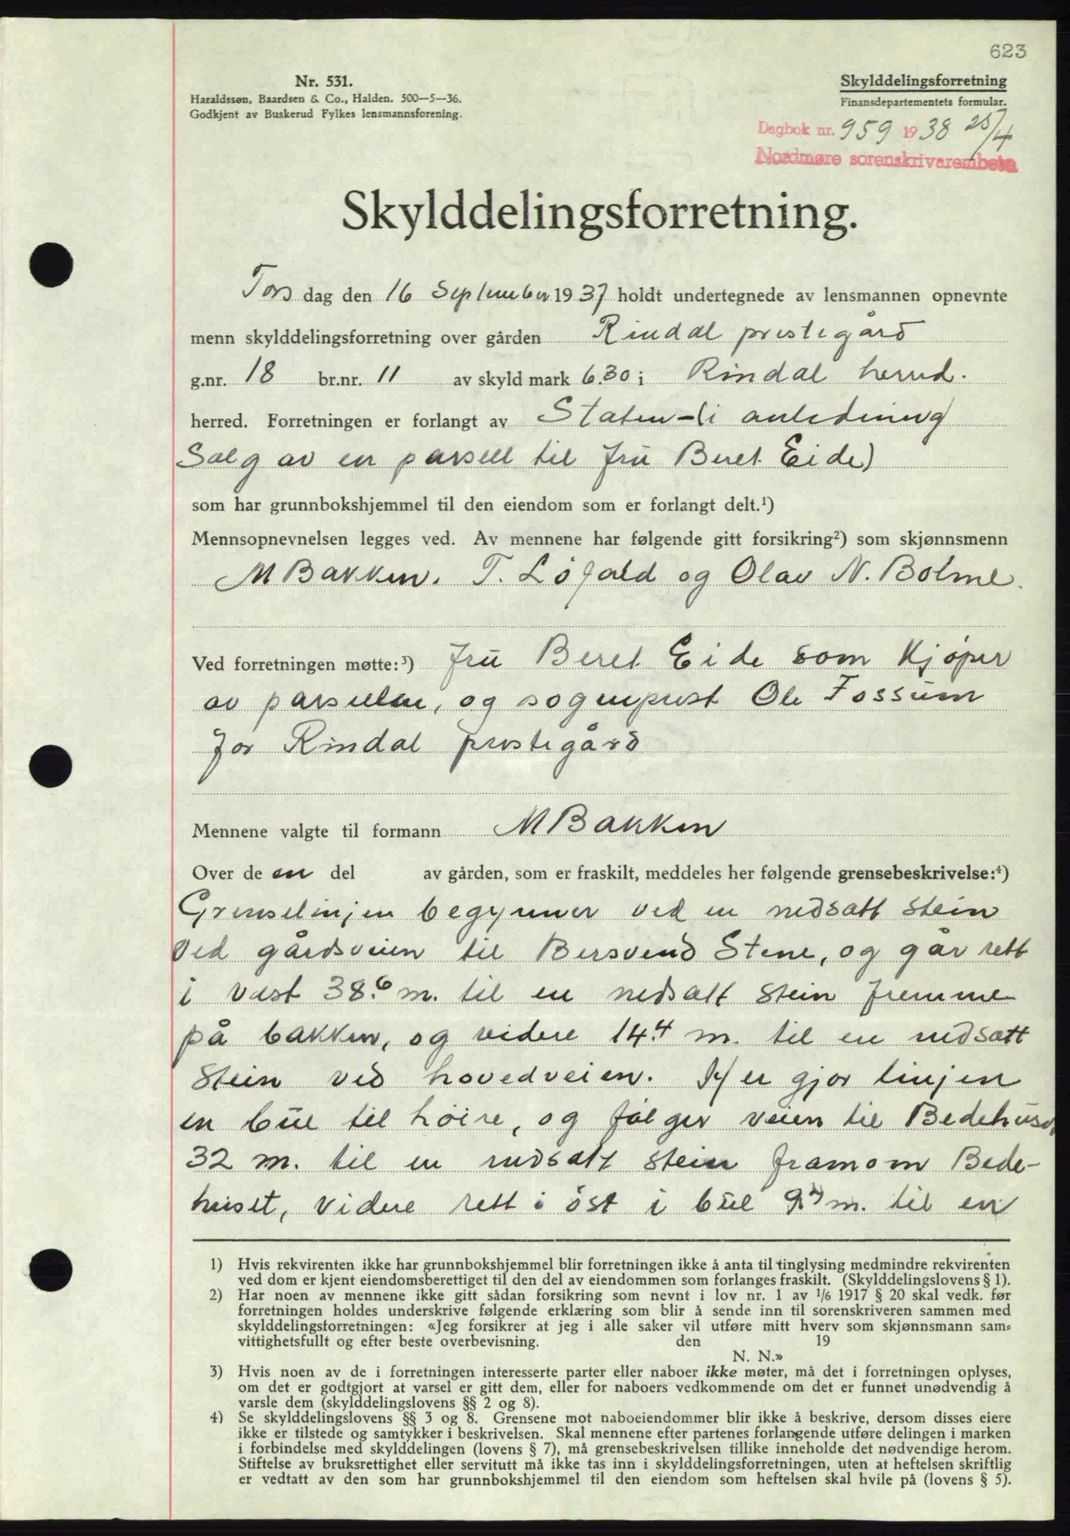 623
Nr. 531.
Haraldssøn, Baardsen & Co., Halden. 500—5—36.
Godkjent av Buskerud Fylkes lensmannsforening.
Skylddelingsforretning
Finansdepartementets formular.
Dagbok nr. 959 1938 25/4
Nordmøre sorenskrivarembete
Skylddelingsforretning.
Tors dag den 16 September 1937 holdt undertegnede av lensmannen opnevnte
menn skylddelingsforretning over gården Rindal prestegård
g.nr. 18 br.nr. 11 av skyld mark 6.30 i Rindal herred.
herred. Forretningen er forlangt av Staten – (i anledning
Salg av en parsell til fru Beret Eide)
som har grunnbokshjemmel til den eiendom som er forlangt delt.¹)
Mennsopnevnelsen legges ved. Av mennene har følgende gitt forsikring²) som skjønnsmenn
M Bakken. T. Løfald og Olav N. Bolme.
Ved forretningen møtte:³) fru Beret Eide som Kjøper
av parsellen, og sogneprest Ole Fossum
for Rindal prestegård
Mennene valgte til formann M Bakken
Over de en del av gården, som er fraskilt, meddeles her følgende grensebeskrivelse:⁴)
Grenselinjen begynner ved en nedsatt stein
ved gårdsveien til Bersvend Stene, og går rett
i vest 38.6 m. til en nedsatt stein fremme
på bakken, og videre 14.4 m. til en nedsatt
Stein ved hovedveien. Her gjør linjen
en bue til høire, og følger veien til Bedehuset
32 m. til en nedsatt stein framom Bede-
huset, videre rett i øst i bue m. til en
1) Hvis rekvirenten ikke har grunnbokshjemmel blir forretningen ikke å anta til tinglysing medmindre rekvirenten
ved dom er kjent eiendomsberettiget til den del av eiendommen som forlanges fraskilt. (Skylddelingslovens § 1).
2) Har noen av mennene ikke gitt sådan forsikring som nevnt i lov nr. 1 av 1/6 1917 § 20 skal vedk. før
forretningen holdes underskrive følgende erklæring som blir å sende inn til sorenskriveren sammen med
skylddelingsforretningen: «Jeg forsikrer at jeg i alle saker vil utføre mitt hverv som skjønnsmann sam-
vittighetsfullt og efter beste overbevisning. den 19
N. N.»
3) Hvis noen av de i forretningen interesserte parter eller naboer ikke møter, må det i forretningen oplyses,
om det er godtgjort at varsel er gitt dem, eller for naboers vedkommende om det er funnet unødvendig å
varsle dem (skylddelingslovens §§ 2 og 8).
4) Se skylddelingslovens §§ 3 og 8. Grensene mot naboeiendommer blir ikke å beskrive, dersom disses eiere
ikke er tilstede og samtykker i beskrivelsen. Skal mennene efter partenes forlangende utføre delingen i marken
i forbindelse med skylddelingen (lovens § 7), må grensebeskrivelsen tillike inneholde det nødvendige herom.
Stiftelse av bruksrettighet eller servitutt må ikke tas inn i skylddelingsforretningen, uten at heftelsen skriftlig
er vedtatt av den som har grunnbokshjemmel til den eiendom som heftelsen skal hvile på (lovens § 5).